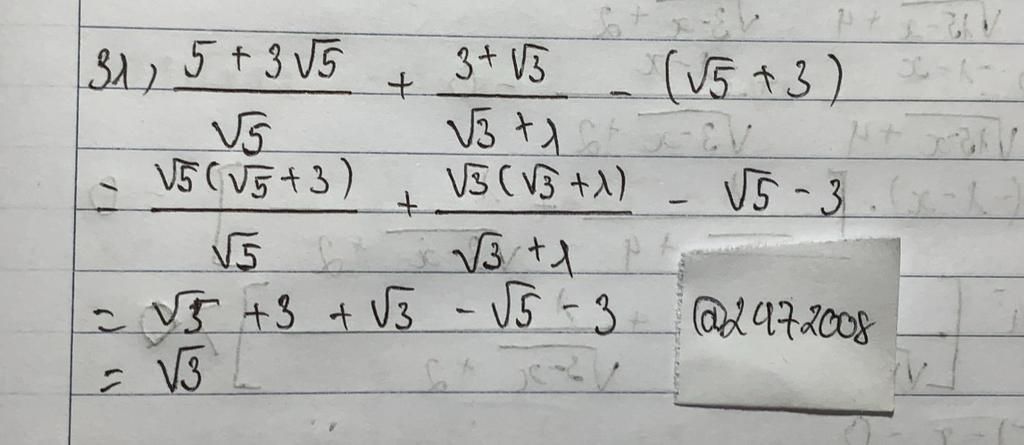 31, (5 + 3√5)/√5 + (3 + √3)/(√3 + 1) - (√5 + 3)
= √5(√5 + 3)/√5 + √3(√3 + 1)/(√3 + 1) - √5 - 3
= √5 + 3 + √3 - √5 - 3
= √3
@2472008